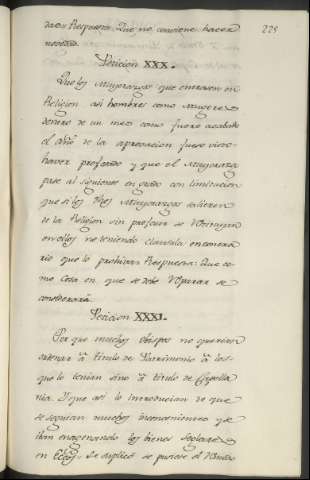 225
das. Respuesta. Que no conviene hacer
novedad.
Peticion XXX.
Que los Mayorazgos que entrasen en
Religion asi hombres como Mugeres
dentro de un mes como fuere acabado
el año de la aprovacion fuese visto
haver profesado y que el Mayorazgo
pase al siguiente en grado con limitacion
que si los tales Mayorazgos salieren
de la Religion sin profesar se
en ellos no teniendo clausula en contra
rio que lo prohiva. Respuesta: Que co-
mo cosa en que se debe reparar se
considerará.
Peticion XXXI.
Por que muchos obispos no querian
ordenar à titulo de Patrimonio à los
que lo tenian sino à titulo de Capella
nia. Y que asi lo introducian de que
se seguian muchos inconvenientes y se
iban enagenando los bienes seglares
en Eccos. Se suplicó se pusiese el